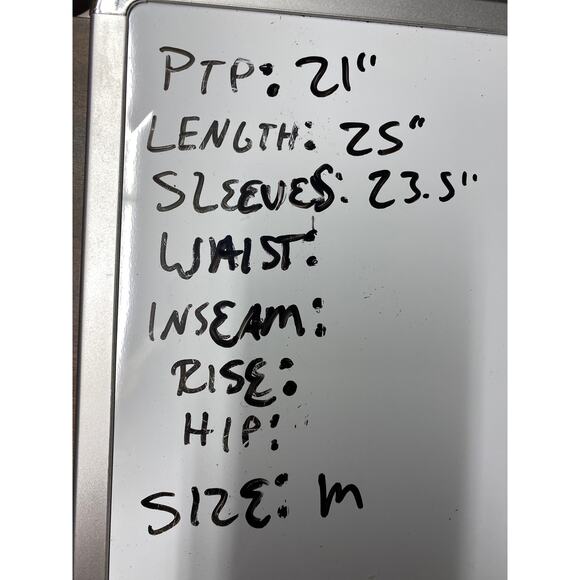 PTP: 21"
LENGTH: 25"
SLEEVES: 23.5"
WAIST:
INSEAM:
RISE:
HIP:
SIZE: M